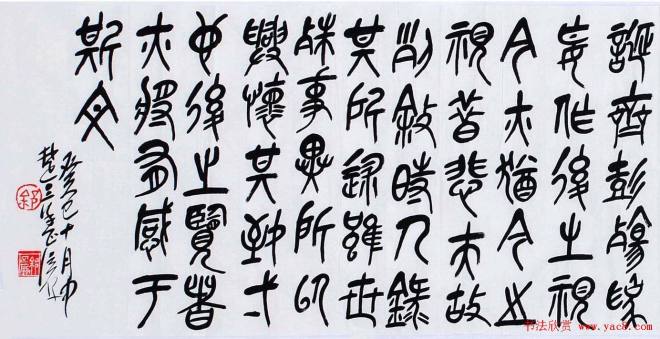 誕齊彭殤為
妄作後之視
今亦猶今之
視昔悲夫故
列敘時人錄
其所錄雖世
殊事異所以
興懷其致弌
也後之覽者
亦將有感于
斯文
癸巳十月
书法欣赏 www.yac8.com